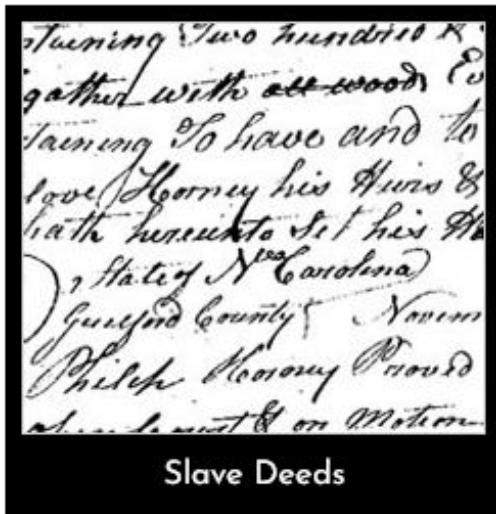 taining Two hundred &
gather with all wood Ev
taining To have and to
love Horney his Heirs &
hath hereunto Set his Ha
State of No Carolina
Guilford County Novem
Philip Horney Proved
on Motion
Slave Deeds